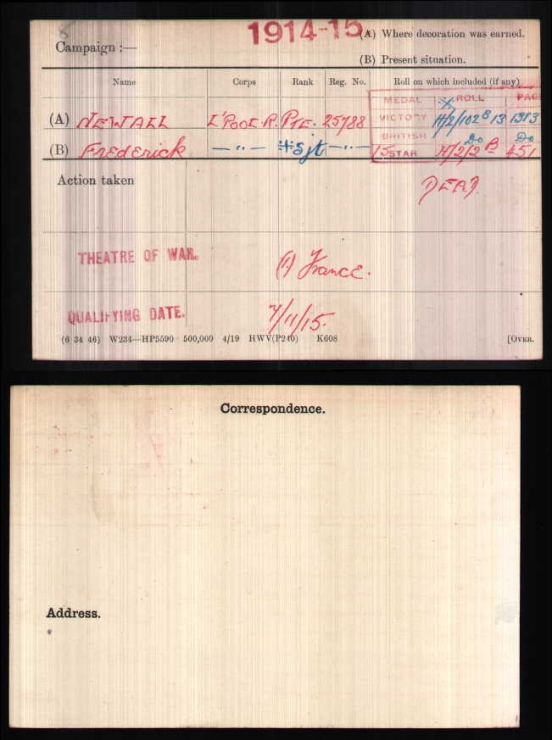 1914-15
Campaign :—
(A) Where decoration was earned.
(B) Present situation.
Name Corps Rank Reg. No. Roll on which included (if any)
MEDAL ROLL PAGE
(A) NEWALL L'POOL. R. PTE. 25788 VICTORY H/2/102B13 1313
(B) Frederick —"— Sjt —"— BRITISH Do Do
15 STAR H/2/2B 451
Action taken
DEAD
THEATRE OF WAR. (1) France.
QUALIFYING DATE. 7/11/15.
(6 34 46) W234—HP5590 500,000 4/19 HWV(P240) K608 [OVER.
Correspondence.
Address.